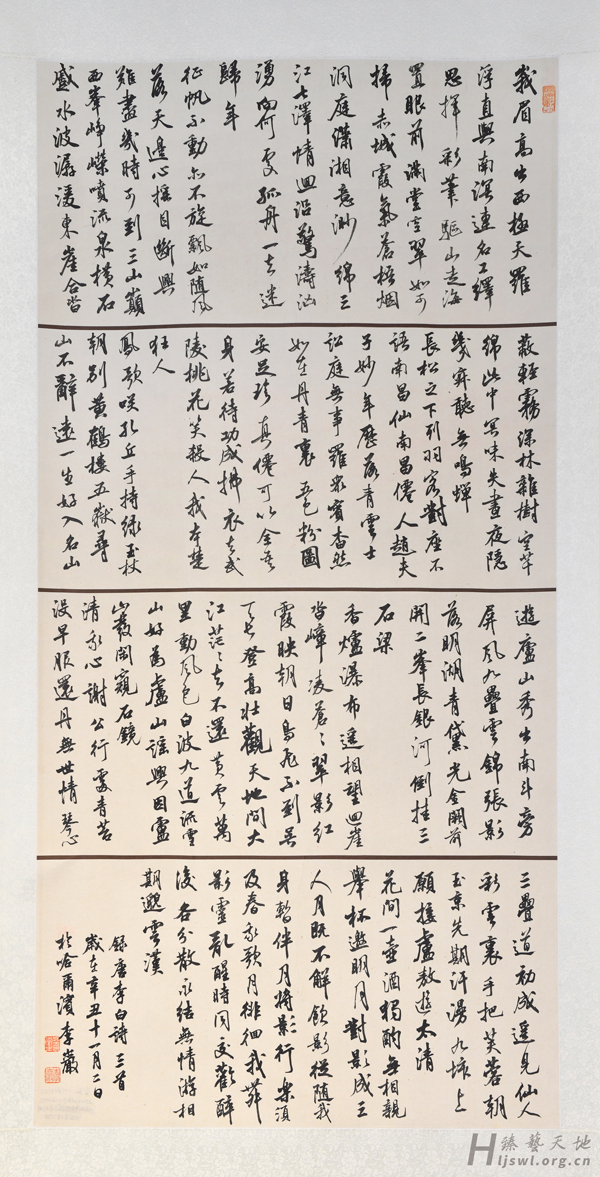 峩眉高出西極天羅
浮直與南溟連名工繹
思揮彩筆驅山走海
置眼前滿堂空翠如可
掃赤城霞氣蒼梧烟
洞庭瀟湘意渺綿三
江七澤情洄沿驚濤洶
湧向何處孤舟一去迷
歸年
征帆不動亦不旋飄如隨風
落天邊心搖目斷興
難盡幾時可到三山巔
西峯崢嶸噴流泉橫石
蹙水波潺湲東崖合沓
蔽輕霧深林雜樹空芊
綿此中冥昧失晝夜隱
幾寂聽無鳴蟬
長松之下列羽客對座不
語南昌仙南昌僊人趙夫
子妙年歷落青雲士
訟庭無事羅衆賓杳然
如在丹青裏五色粉圖
安足珍真僊可以全吾
身若待功成拂衣去武
陵桃花笑殺人我本楚
狂人
鳳歌笑孔丘手持綠玉杖
朝別黃鶴樓五嶽尋
山不辭遠一生好入名山
遊廬山秀出南斗旁
屏風九疊雲錦張影
落明湖青黛光金闕前
開二峯長銀河倒挂三
石梁
香爐瀑布遙相望迴崖
沓嶂凌蒼〻翠影紅
霞映朝日鳥飛不到吳
天長登高壯觀天地間大
江茫〻去不還黃雲萬
里動風色白波九道流雪
山好為廬山謠興因廬
山發閑窺石鏡
清我心謝公行處青苔
沒早服還丹無世情琴心
三疊道初成遙見仙人
彩雲裏手把芙蓉朝
玉京先期汗漫九垓上
願接盧敖遊太清
花間一壺酒獨酌無相親
舉杯邀明月對影成三
人月既不解飲影徒隨我
身暫伴月將影行樂須
及春我歌月徘徊我舞
影零亂醒時同交歡醉
後各分散永結無情游相
期邈雲漢
錄唐李白詩三首
歲在辛丑十一月二日
於哈爾濱李巖
臻藝天地
Hljswl.org.cn